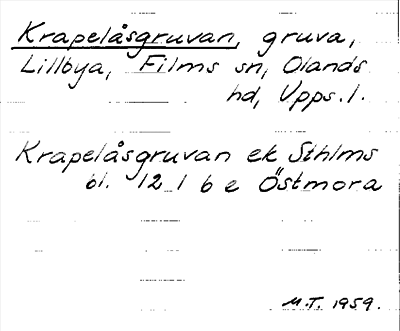 Krapelåsgruvan, gruva,
Lillbya, Films sn, Olands
hd, Upps. l.
Krapelåsgruvan ek Sthlms
bl. 12 1 6 e Östmora
M.T. 1959.